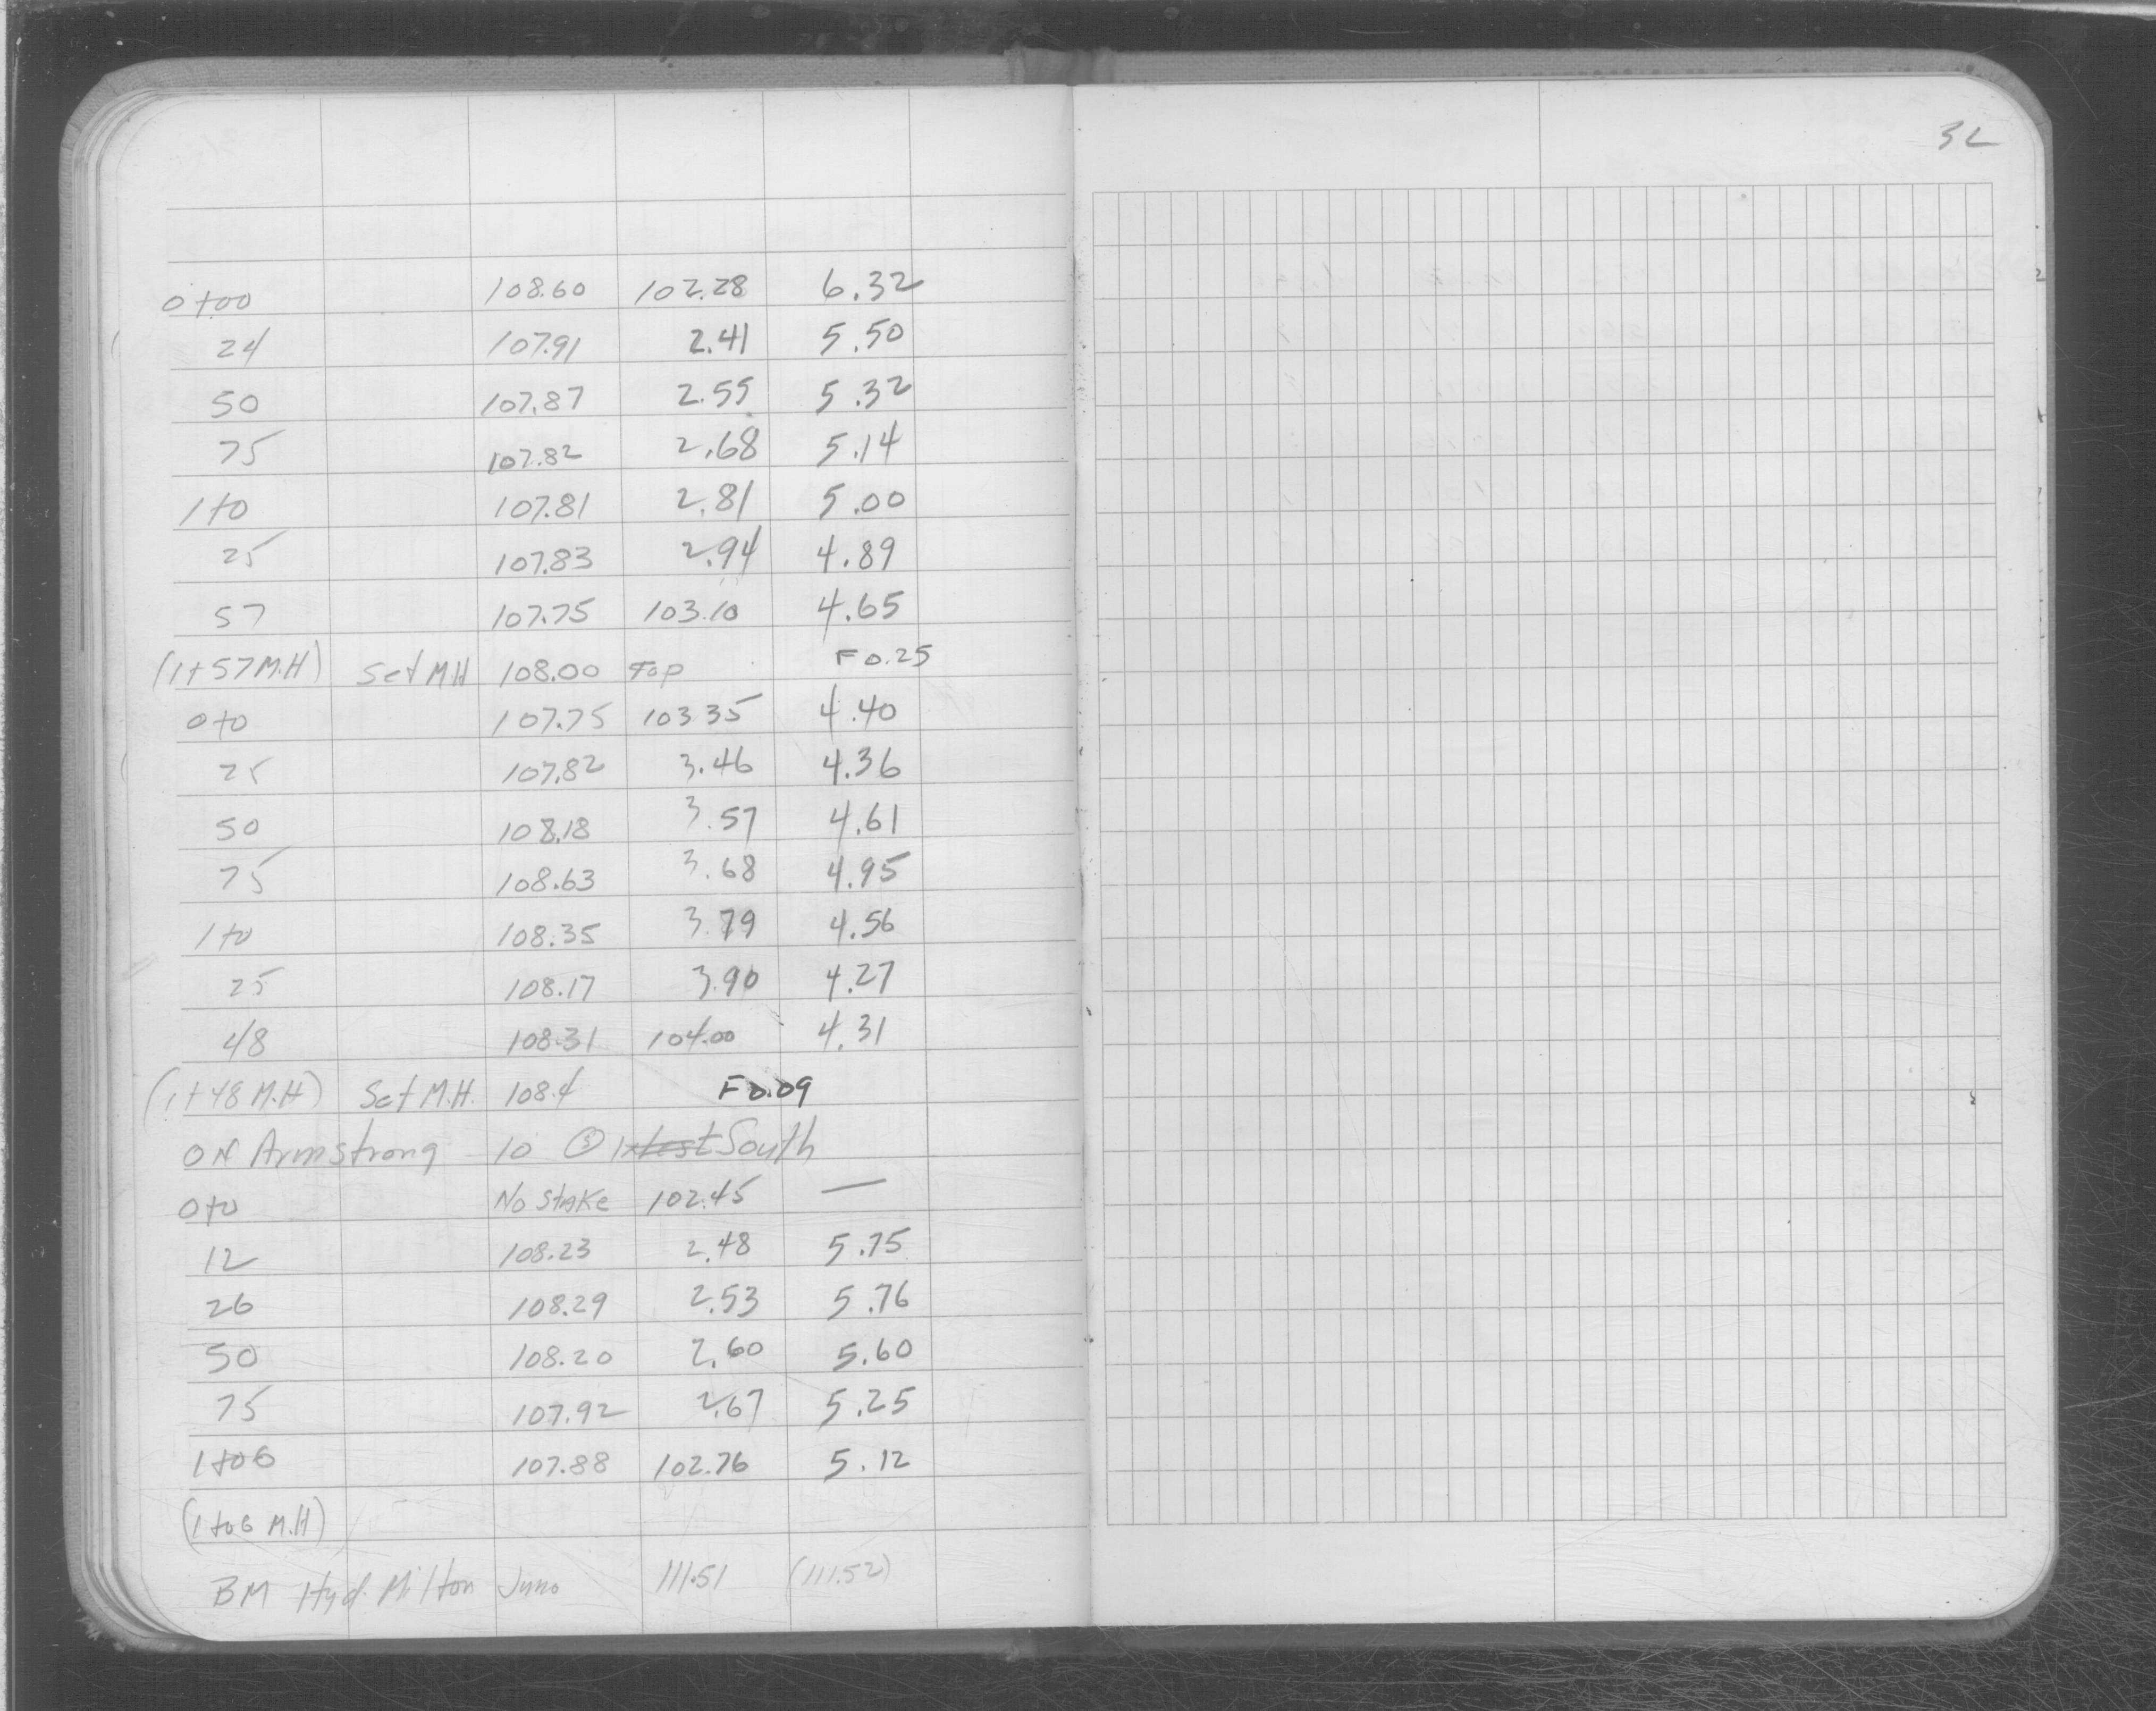 32
0+00 108.60 102.28 6.32
24 107.91 2.41 5.50
50 107.87 2.55 5.32
75 107.82 2.68 5.14
1+0 107.81 2.81 5.00
25 107.83 2.94 4.89
57 107.75 103.10 4.65
(1+57 M.H) Set M.H 108.00 Top F 0.25
0+0 107.75 103.35 4.40
25 107.82 3.46 4.36
50 108.18 3.57 4.61
75 108.63 3.68 4.95
1+0 108.35 3.79 4.56
25 108.17 3.90 4.27
48 108.31 104.00 4.31
(1+48 M.H) Set M.H. 108.4 F 0.09
ON Armstrong 10 South
0+0 No Stake 102.45 —
12 108.23 2.48 5.75
26 108.29 2.53 5.76
50 108.20 2.60 5.60
75 107.92 2.67 5.25
1+06 107.88 102.76 5.12
(1+06 M.H)
BM Hyd. Milton Juno 111.51 (111.52)